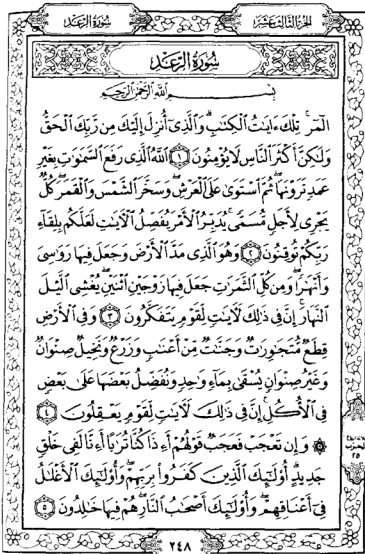 سُورَةُ الرَّعْدِ الجُزْءُ الثَّالِثَ عَشَرَ
سُورَةُ الرَّعْدِ
بِسْمِ اللَّهِ الرَّحْمَٰنِ الرَّحِيمِ
الٓمٓر تِلْكَ ءَايَٰتُ الْكِتَٰبِ وَالَّذِىٓ أُنزِلَ إِلَيْكَ مِن رَّبِّكَ الْحَقُّ
وَلَٰكِنَّ أَكْثَرَ النَّاسِ لَا يُؤْمِنُونَ ١ اللَّهُ الَّذِى رَفَعَ السَّمَٰوَٰتِ بِغَيْرِ
عَمَدٍ تَرَوْنَهَا ثُمَّ اسْتَوَىٰ عَلَى الْعَرْشِ وَسَخَّرَ الشَّمْسَ وَالْقَمَرَ كُلٌّ
يَجْرِى لِأَجَلٍ مُّسَمًّى يُدَبِّرُ الْأَمْرَ يُفَصِّلُ الْآيَٰتِ لَعَلَّكُم بِلِقَآءِ
رَبِّكُمْ تُوقِنُونَ ٢ وَهُوَ الَّذِى مَدَّ الْأَرْضَ وَجَعَلَ فِيهَا رَوَٰسِىَ
وَأَنْهَٰرًا وَمِن كُلِّ الثَّمَرَٰتِ جَعَلَ فِيهَا زَوْجَيْنِ اثْنَيْنِ يُغْشِى الَّيْلَ
النَّهَارَ إِنَّ فِى ذَٰلِكَ لَآيَٰتٍ لِّقَوْمٍ يَتَفَكَّرُونَ ٣ وَفِى الْأَرْضِ
قِطَعٌ مُّتَجَٰوِرَٰتٌ وَجَنَّٰتٌ مِّنْ أَعْنَٰبٍ وَزَرْعٌ وَنَخِيلٌ صِنْوَانٌ
وَغَيْرُ صِنْوَانٍ يُسْقَىٰ بِمَآءٍ وَٰحِدٍ وَنُفَضِّلُ بَعْضَهَا عَلَىٰ بَعْضٍ
فِى الْأُكُلِ إِنَّ فِى ذَٰلِكَ لَآيَٰتٍ لِّقَوْمٍ يَعْقِلُونَ ٤
۞ وَإِن تَعْجَبْ فَعَجَبٌ قَوْلُهُمْ أَءِذَا كُنَّا تُرَٰبًا أَءِنَّا لَفِى خَلْقٍ
جَدِيدٍ أُو۟لَٰٓئِكَ الَّذِينَ كَفَرُوا۟ بِرَبِّهِمْ وَأُو۟لَٰٓئِكَ الْأَغْلَٰلُ
فِىٓ أَعْنَاقِهِمْ وَأُو۟لَٰٓئِكَ أَصْحَٰبُ النَّارِ هُمْ فِيهَا خَٰلِدُونَ ٥
٢٤٨